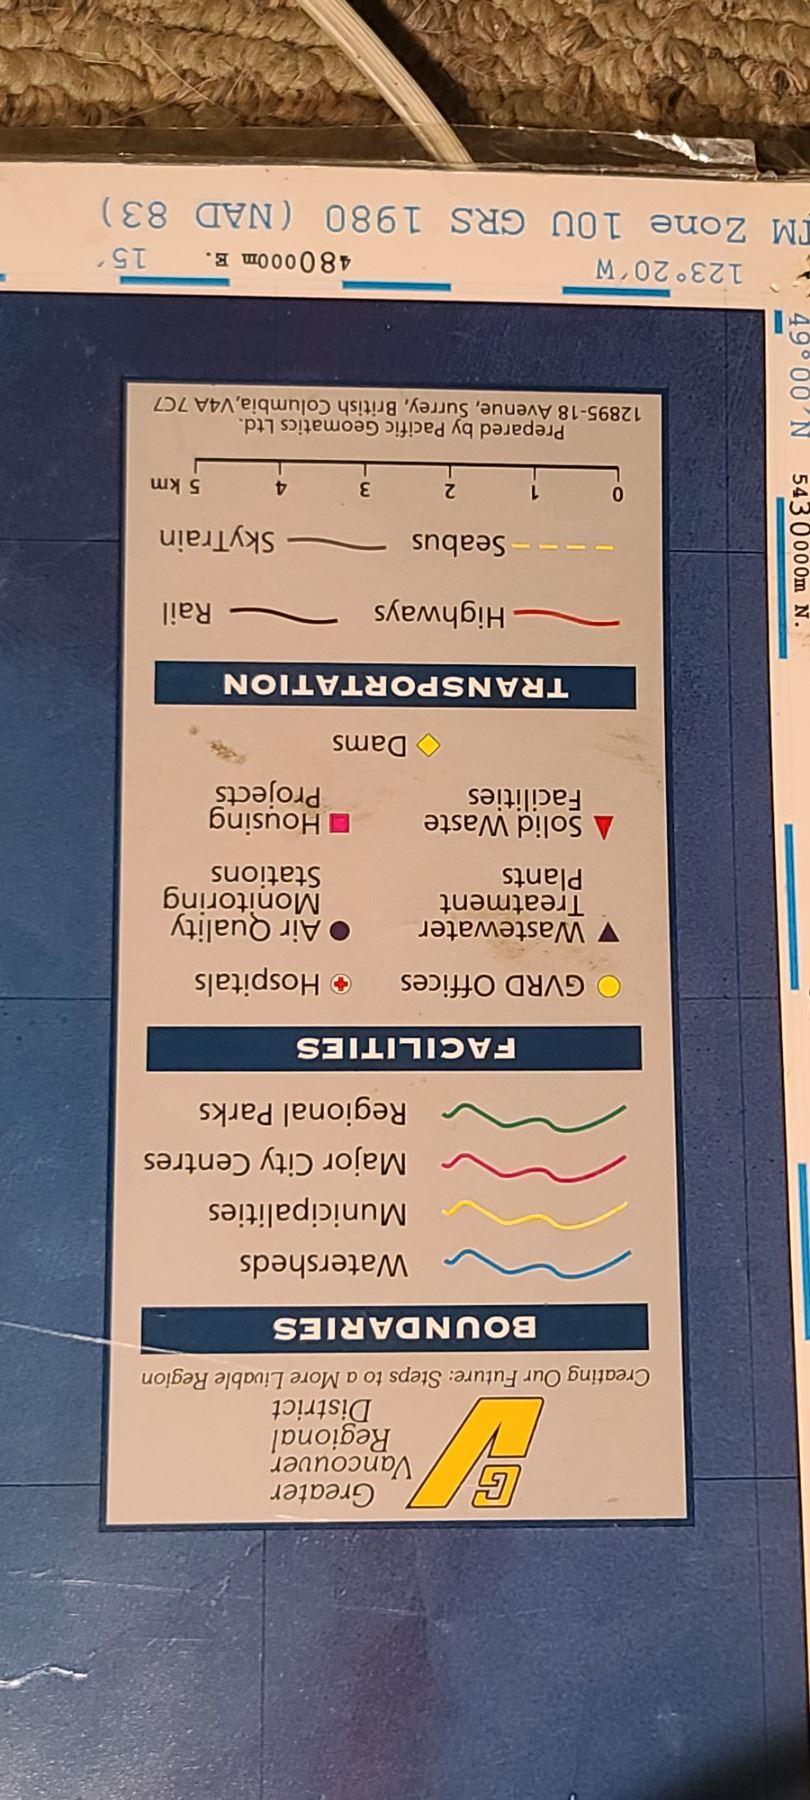 GV
Greater
Vancouver
Regional
District
Creating Our Future: Steps to a More Livable Region
BOUNDARIES
Watersheds
Municipalities
Major City Centres
Regional Parks
FACILITIES
GVRD Offices
Hospitals
Wastewater
Treatment
Plants
Air Quality
Monitoring
Stations
Solid Waste
Facilities
Housing
Projects
Dams
TRANSPORTATION
Highways
Rail
Seabus
SkyTrain
0 1 2 3 4 5 km
Prepared by Pacific Geomatics Ltd.
12895-18 Avenue, Surrey, British Columbia,V4A 7C7
5430000m N.
49°00'N
123°20'W
480000m E.
15'
TM Zone 10U GRS 1980 (NAD 83)